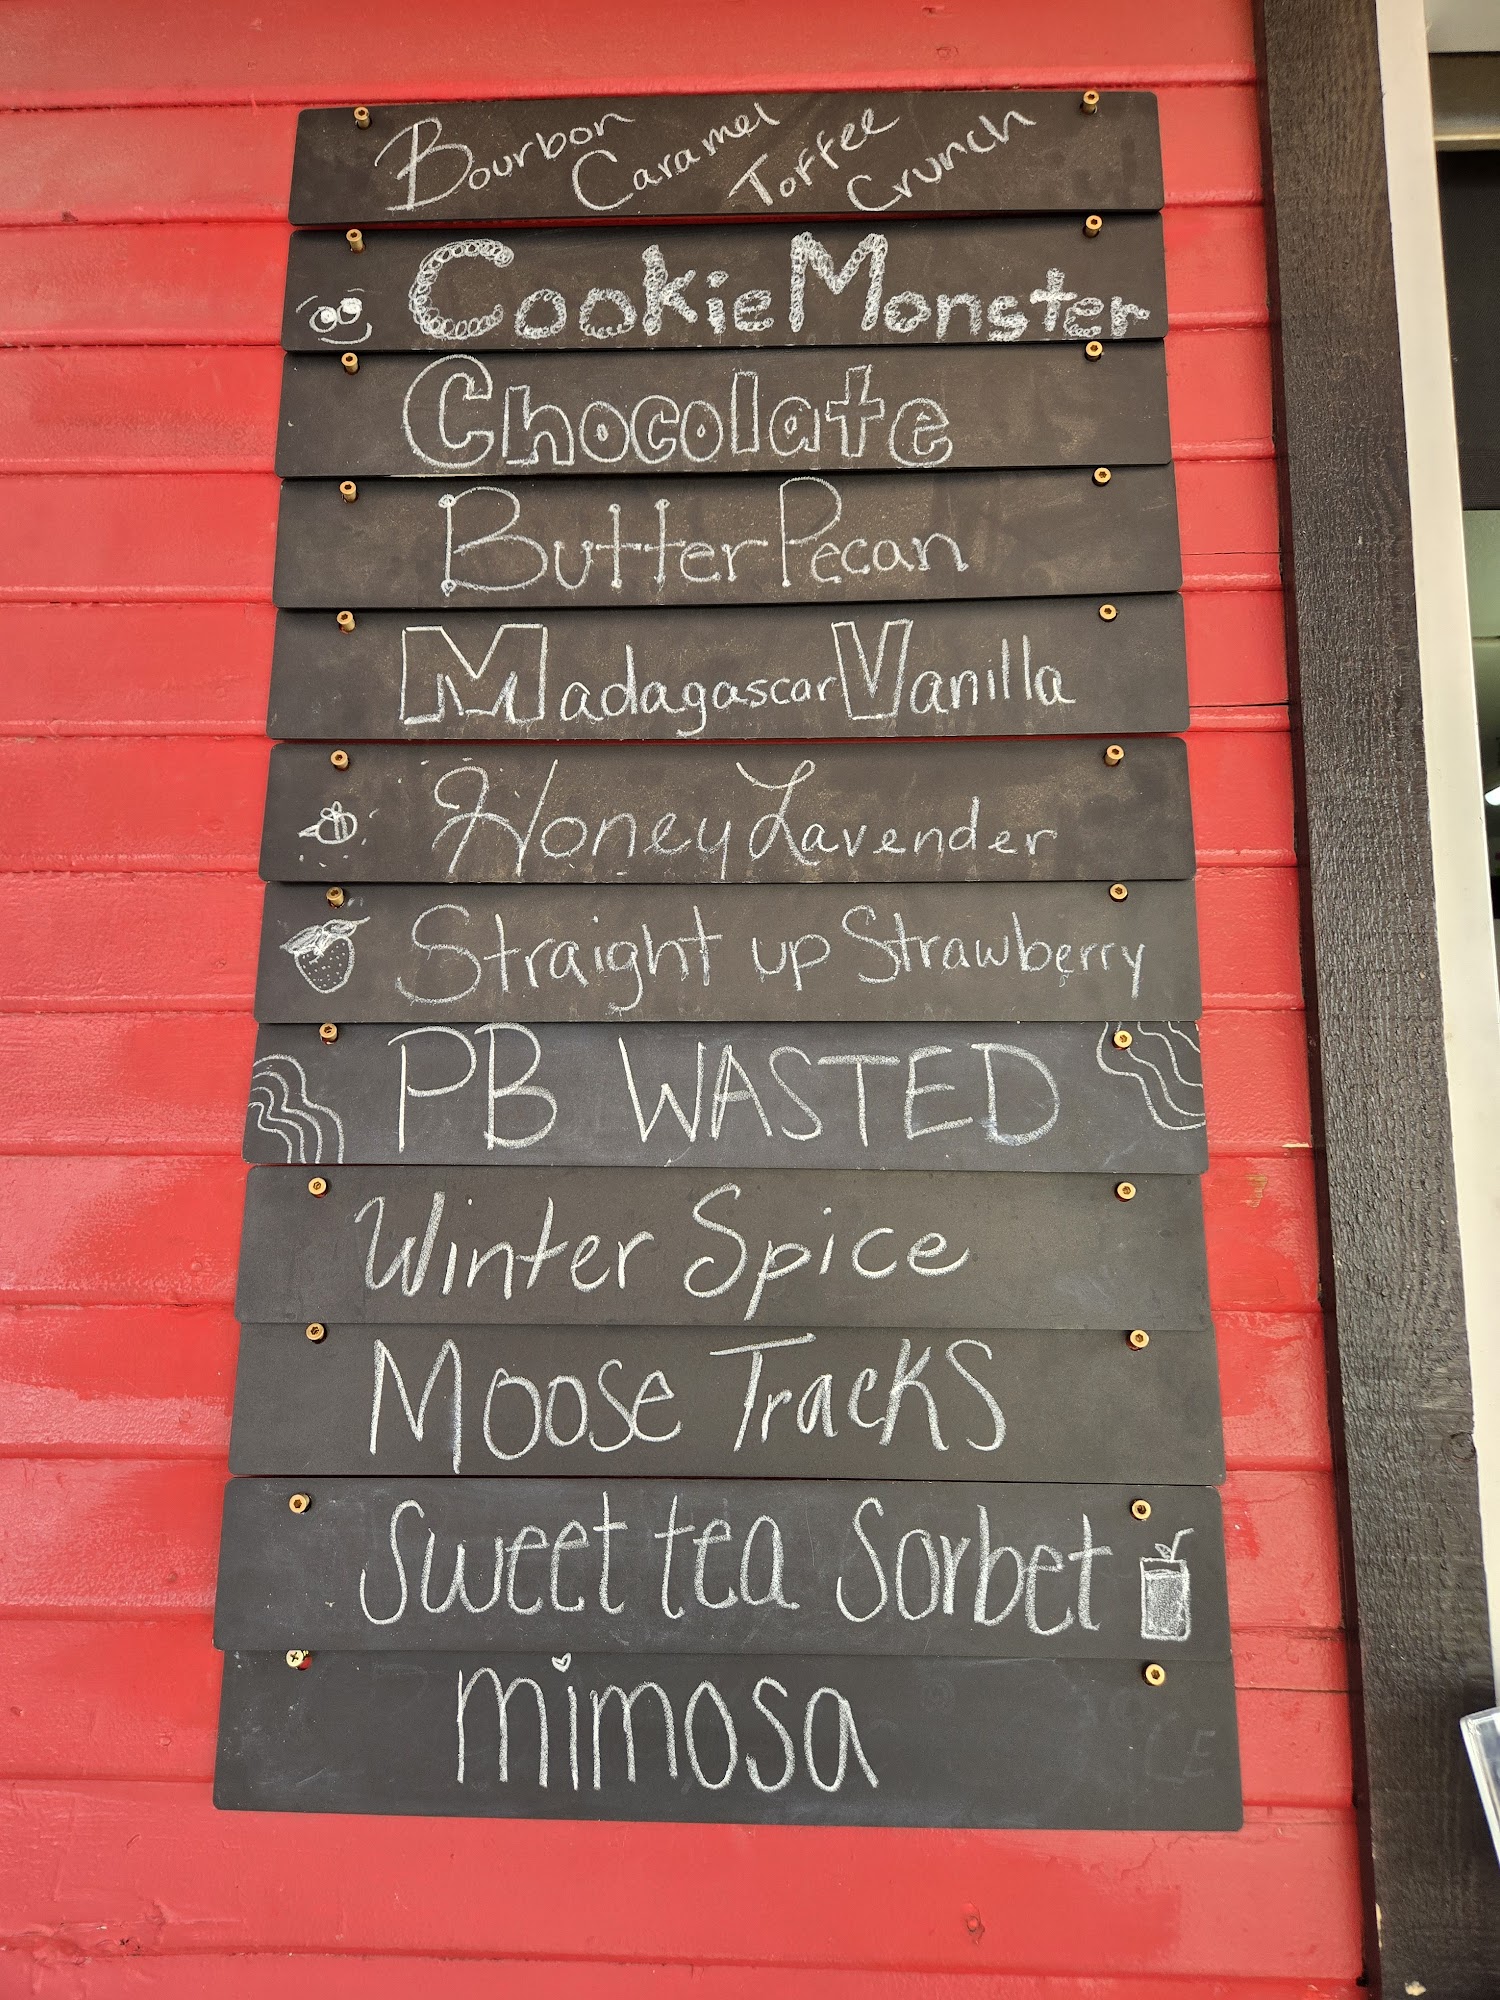 Bourbon Caramel Toffee Crunch
Cookie Monster
Chocolate
Butter Pecan
Madagascar Vanilla
Honey Lavender
Straight up Strawberry
PB WASTED
Winter Spice
Moose Tracks
Sweet tea Sorbet
mimosa